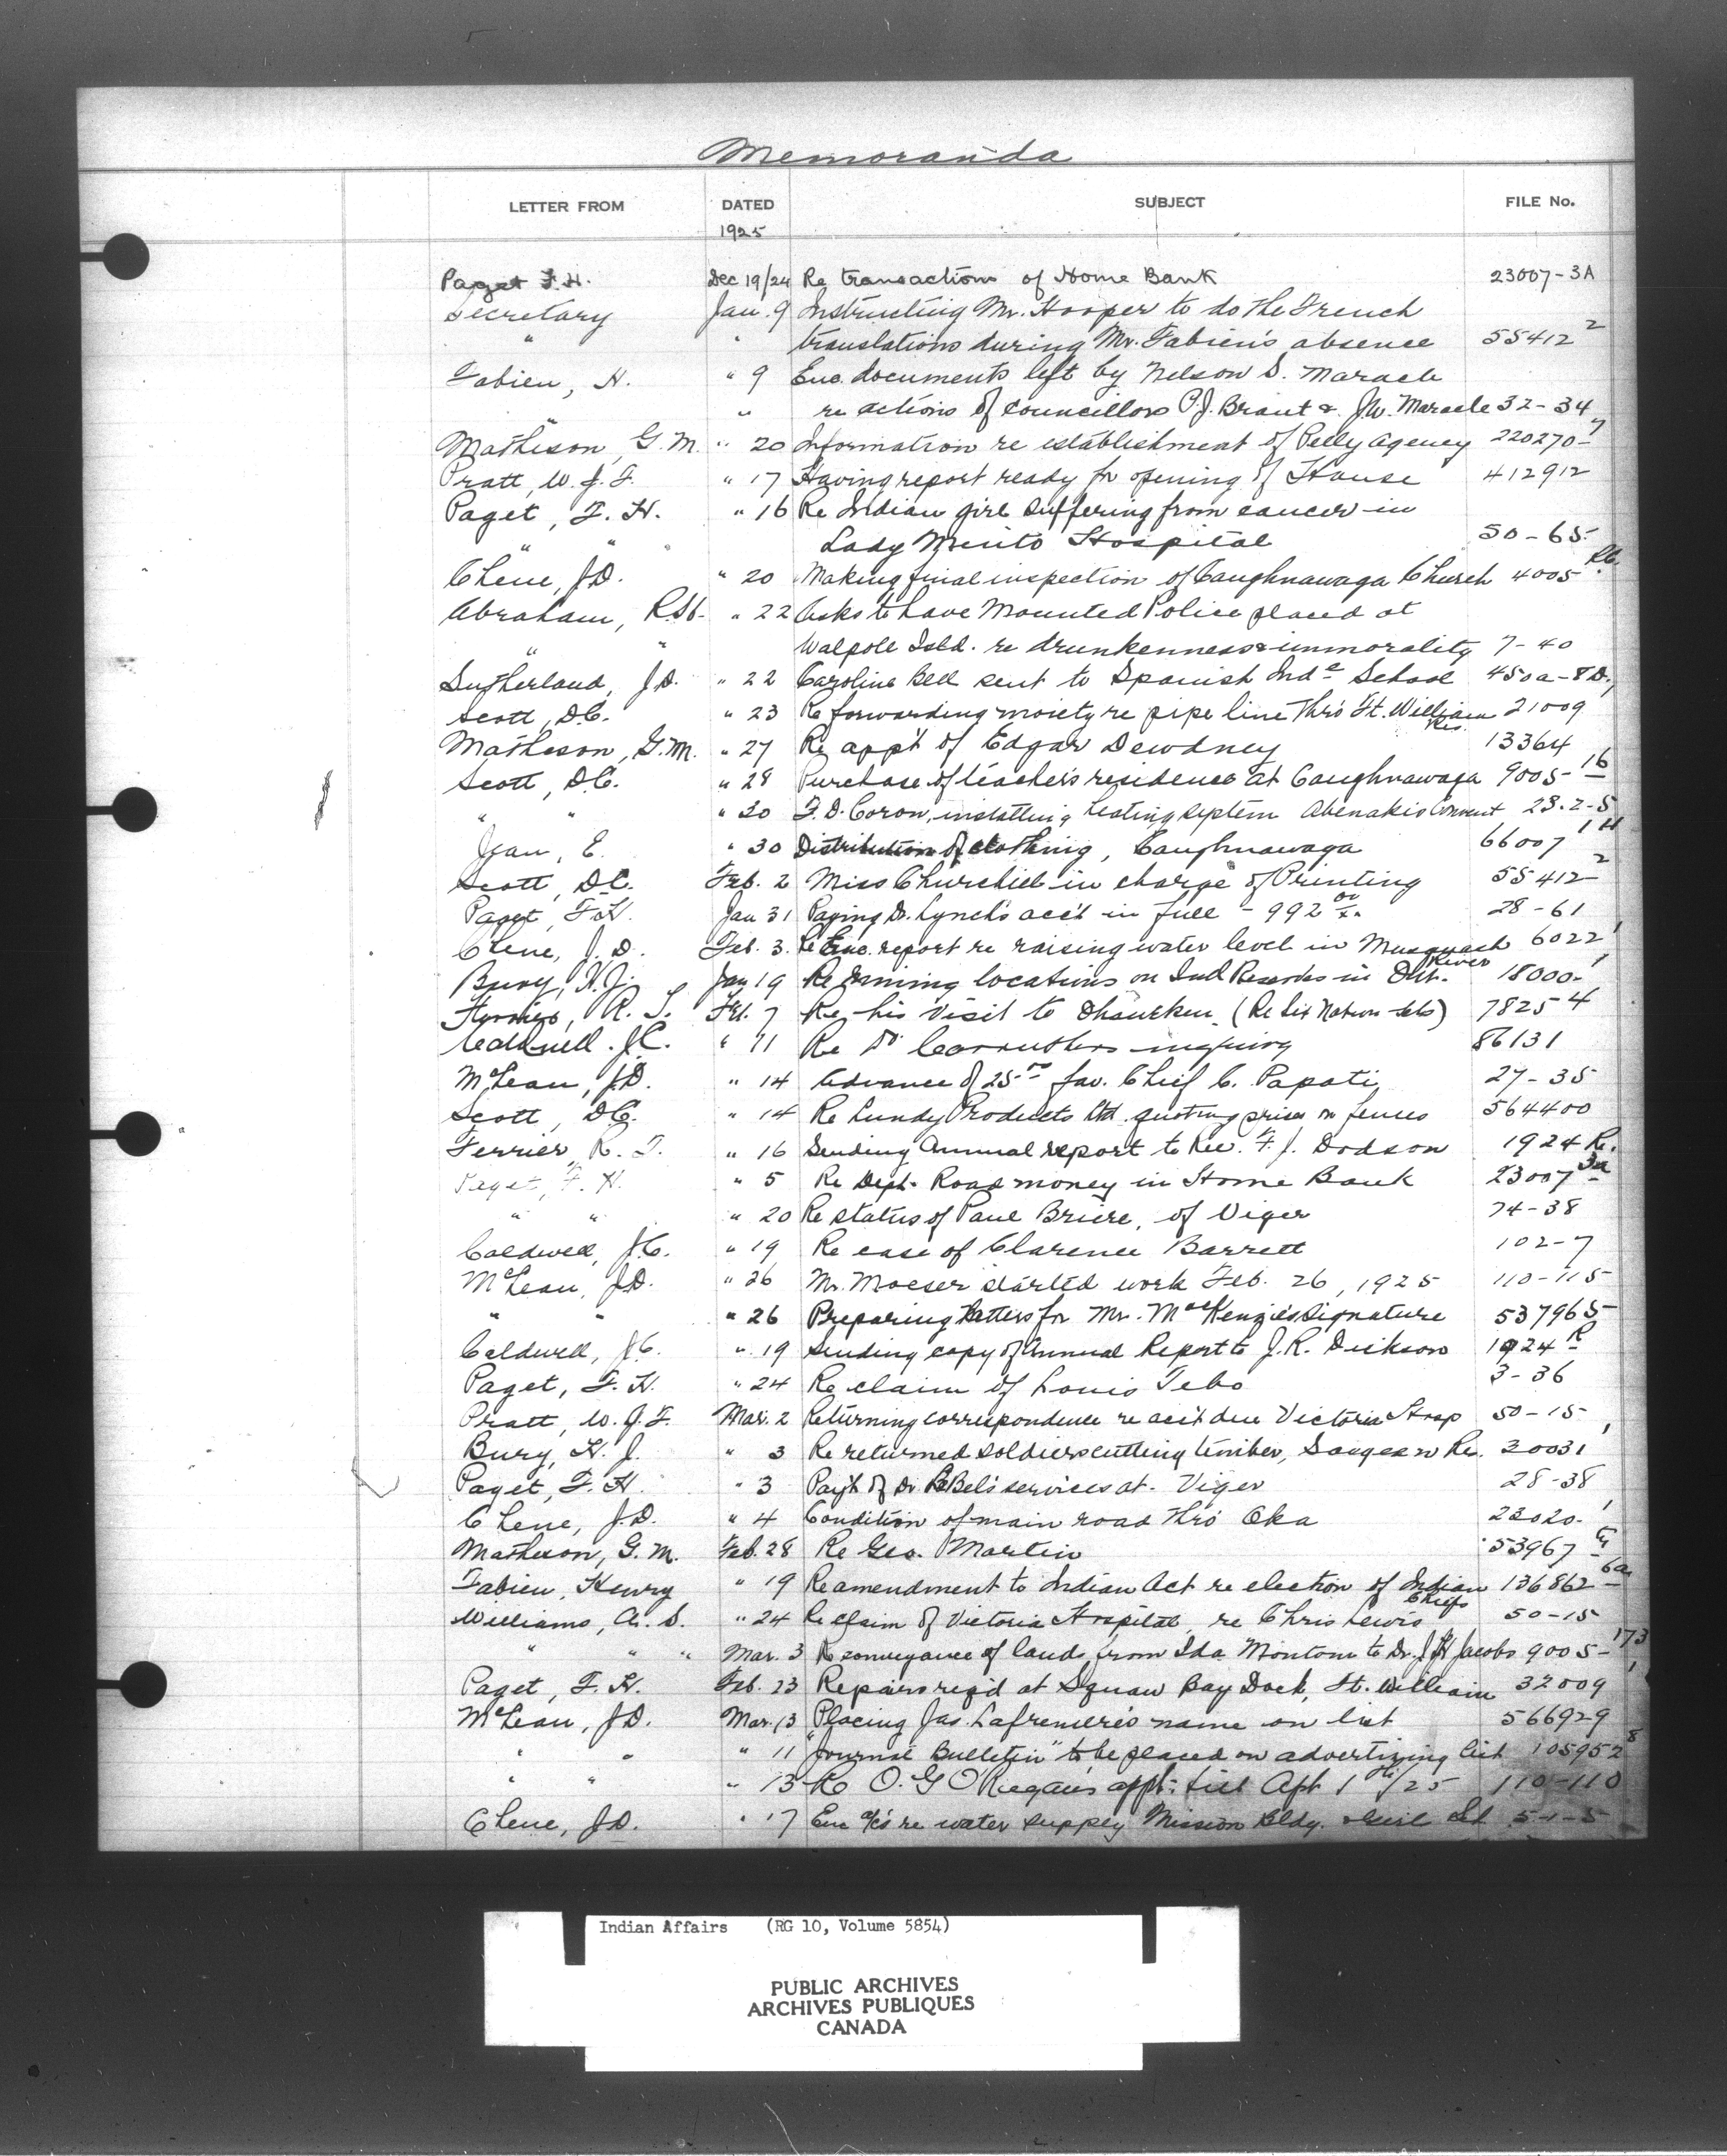 Memoranda
LETTER FROM DATED SUBJECT FILE No.
1925
Paget F.H. Dec 19/24 Re transactions of Home Bank 23007-3A
Secretary Jan. 9 Instructing Mr. Hooper to do the French
" " translations during Mr. Fabien's absence 55412 2
Fabien, H. " 9 Enc. documents left by Nelson S. Maracle
" re actions of Councillors P.J. Brant & J.W. Maracle 32-34
Matheson, G.M. " 20 Information re establishment of Pelly Agency 220270-7
Pratt, W.J.F. " 17 Having report ready for opening of House 412912
Paget, F.H. " 16 Re Indian girl suffering from cancer in
" " " Lady Minto Hospital 50-65
Chene, J.D. " 20 Making final inspection of Caughnawaga Church 4005 R.C.
Abraham, " 22 Asks to have Mounted Police placed at
" " Walpole Isld. re drunkenness & immorality 7-40
Sutherland, J.D. " 22 Caroline Bell sent to Spanish Ind e School 450a-8D.
Scott, D.C. " 23 Re forwarding moiety re pipe line thro' Ft. William 21009
Res.
Matheson, G.M. " 27 Re app't of Edgar Dewdney 13364
Scott, D.C. " 28 Purchase of teacher's residence at Caughnawaga 9005-16
" " " 30 F.D. Coron, installing heating system Abenakis Convent 23.2-5
Jean, E. " 30 Distribution of clothing, Caughnawaga 66007 1H
Scott, D.C. Feb. 2 Miss Churchill in charge of Printing 55412 2
Paget, F.H. Jan 31 Paying Dr. Lynch's acc't in full - 992 28-61
Chene, J.D. Feb. 3. Re Enc. report re raising water level in Musquash 6022 1
River
Bury, H.J. Jan 19 Re mining locations on Ind Reserves in Ont. 18000-1
Ferrier, R. T. Feb. 7 Re his visit to (Re Six Nation ) 7825 4
Caldwell. J.C. " 11 Re Dr. Carruthers inquiry 86131
McLean, J.D. " 14 Advance of 25 00 fav. Chief C. Papati 27-35
Scott, D.C. " 14 Re Lundy Products Ltd. quoting prices on fences 564400
Ferrier, R. T. " 16 Sending Annual report to Rev. F.J. Dodson 1924 R.
Paget, F.H. " 5 Re Dept. Road money in Home Bank 23007 3a
" " " 20 Re status of Paul Briere, of Viger 74-38
Caldwell, J.C. " 19 Re case of Clarence Barrett 102-7
McLean, J.D. " 26 Mr. Moeser started work Feb. 26, 1925 110-115
" " " 26 Preparing letters for Mr. MacKenzie's signature 537965
Caldwell, J.C. " 19 Sending copy of Annual Report to J.R. Dickson 1924 R
Paget, F.H. " 24 Re claim of Louis Tebo 3-36
Pratt, W.J.F. Mar. 2 Returning correspondence re acc't due Victoria Hosp 50-15
Bury, H.J. " 3 Re returned soldiers cutting timber, Saugeen Re. 20031 1
Paget, F.H. " 3 Pay't of Dr. LeBel's services at Viger 28-38
Chene, J.D. " 4 Condition of main road thro' Oka 23020-1
Matheson, G.M. Feb. 28 Re Geo. Martin 53967
Fabien, Henry " 19 Re amendment to Indian Act re election of Indian 136862-6a
Chiefs
Williams, A.S. " 24 Re claim of Victoria Hospital, re Chris Lewis 50-15
" " " Mar. 3 Re conveyance of land from Ida Montour to Dr. J.H. Jacobs 9005-173
Paget, F.H. Feb. 23 Repairs req'd at Squaw Bay Dock, Ft. William 32009 1
McLean, J.D. Mar. 13 Placing Jas. Lafreniere's name on list 566929
" " " 11 "Journal Bulletin" to be placed on advertizing list 105952 8
" " " 13 Re O.G. O'Reagan's appt. till Apl 1st/25 110-110
Chene, J.D. " 17 Enc a/cs re water supply Mission Bldg. 5-1-5
Indian Affairs (RG 10, Volume 5854)
PUBLIC ARCHIVES
ARCHIVES PUBLIQUES
CANADA